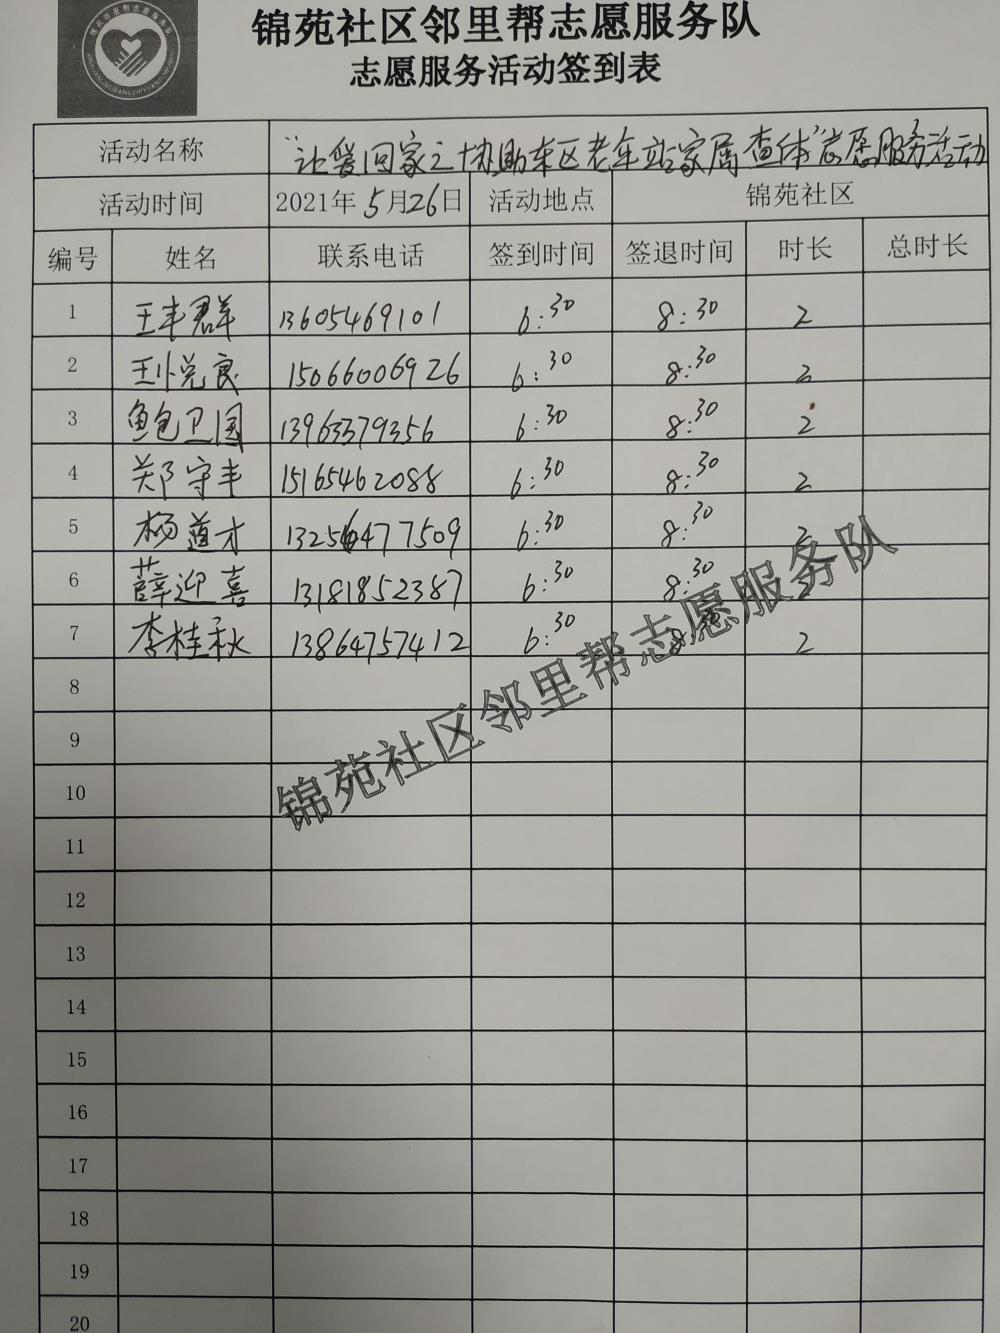 锦苑社区邻里帮志愿服务队
志愿服务活动签到表
活动名称 "让爱回家之"协助车区老车站家属查体"志愿服务活动
活动时间 2021年5月26日 活动地点 锦苑社区
编号 姓名 联系电话 签到时间 签退时间 时长 总时长
1 王丰君羊 13605469101 6:30 8:30 2
2 王悦良 15066006926 6:30 8:30 2
3 鲍卫国 13963379356 6:30 8:30 2
4 郑守丰 15165462088 6:30 8:30 2
5 杨道才 13256477509 6:30 8:30 2
6 薛迎喜 13181852387 6:30 8:30 2
7 李桂秋 13864757412 6:30 8:30 2
8
9
10
11
12
13
14
15
16
17
18
19
20
锦苑社区邻里帮志愿服务队